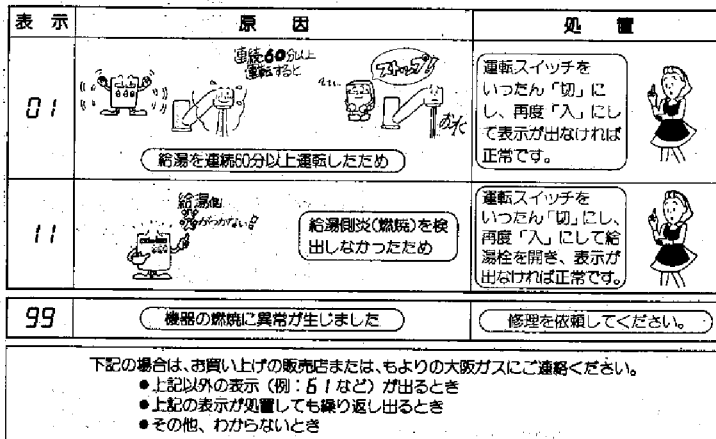 表 示
原 因
処 置
01
連続60分以上
運転すると
ストップ!
給湯を連続60分以上運転したため
運転スイッチを
いったん「切」に
し、再度「入」にし
て表示が出なければ
正常です。
11
給湯側
がつかない!
給湯側炎(燃焼)を検
出しなかったため
運転スイッチを
いったん「切」にし、
再度「入」にして給
湯栓を開き、表示が
出なければ正常です。
99
機器の燃焼に異常が生じました
修理を依頼してください。
下記の場合は、お買い上げの販売店または、もよりの大阪ガスにご連絡ください。
●上記以外の表示(例:61など)が出るとき
●上記の表示が処置しても繰り返し出るとき
●その他、わからないとき